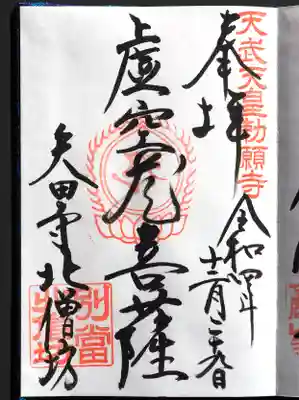 天武天皇勅願寺
奉拝
令和四年
十二月
虚空蔵菩薩
矢田寺北僧坊
別當